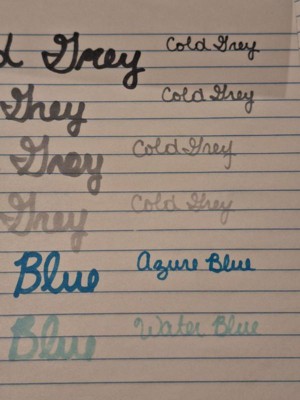 d Grey Cold Grey
Grey Cold Grey
Grey Cold Grey
Grey Cold Grey
Blue Azure Blue
Blue Water Blue